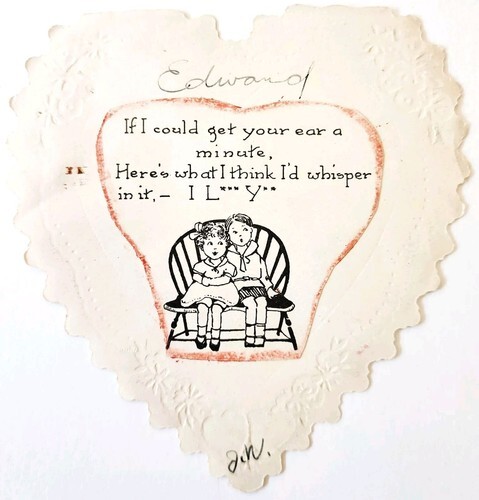 Edward
If I could get your ear a
minute,
Here's what I think I'd whisper
in it,– I L*** Y**
J.W.